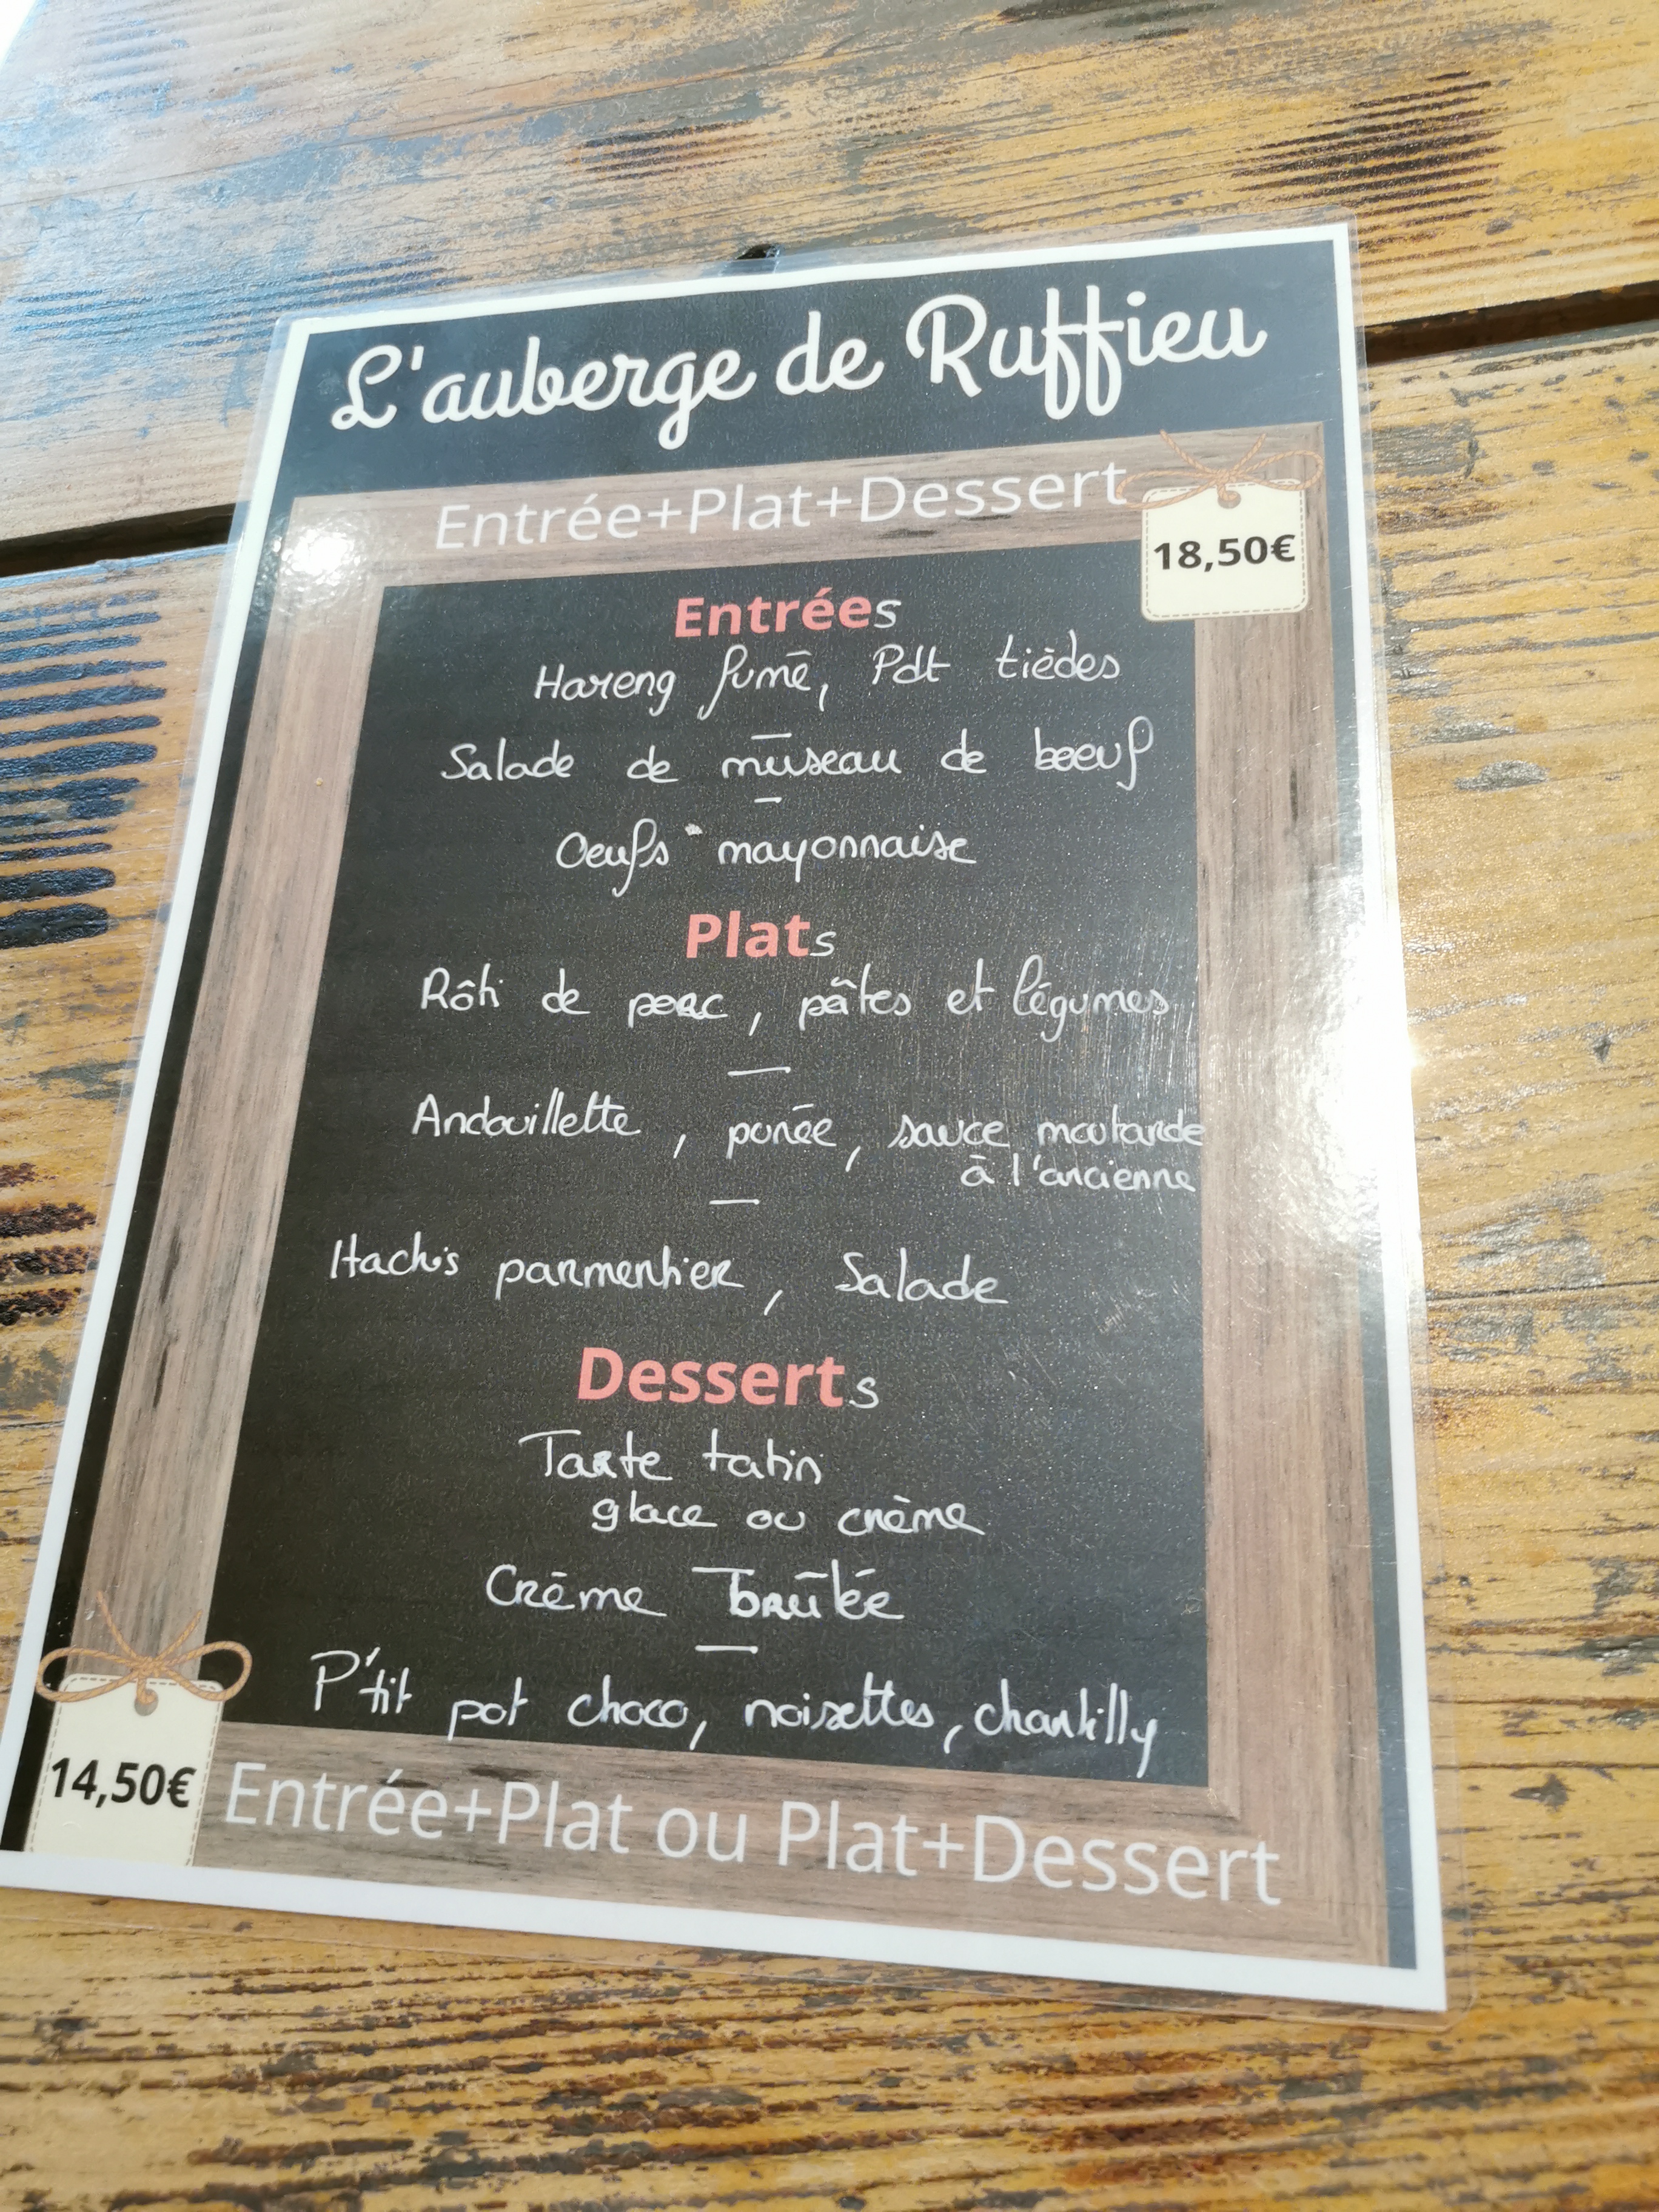 L'auberge de Ruffieu
Entrée+Plat+Dessert
18,50€
Entrées
Hareng fumé, Pdt tièdes
—
Salade de museau de boeuf
—
Oeufs mayonnaise
Plats
Rôti de porc, pâtes et légumes
—
Andouillette, purée, sauce moutarde
à l'ancienne
—
Hachis parmentier, Salade
Desserts
Tarte tatin
glace ou crème
—
Crème brûlée
—
P'tit pot choco, noisettes, chantilly
14,50€
Entrée+Plat ou Plat+Dessert